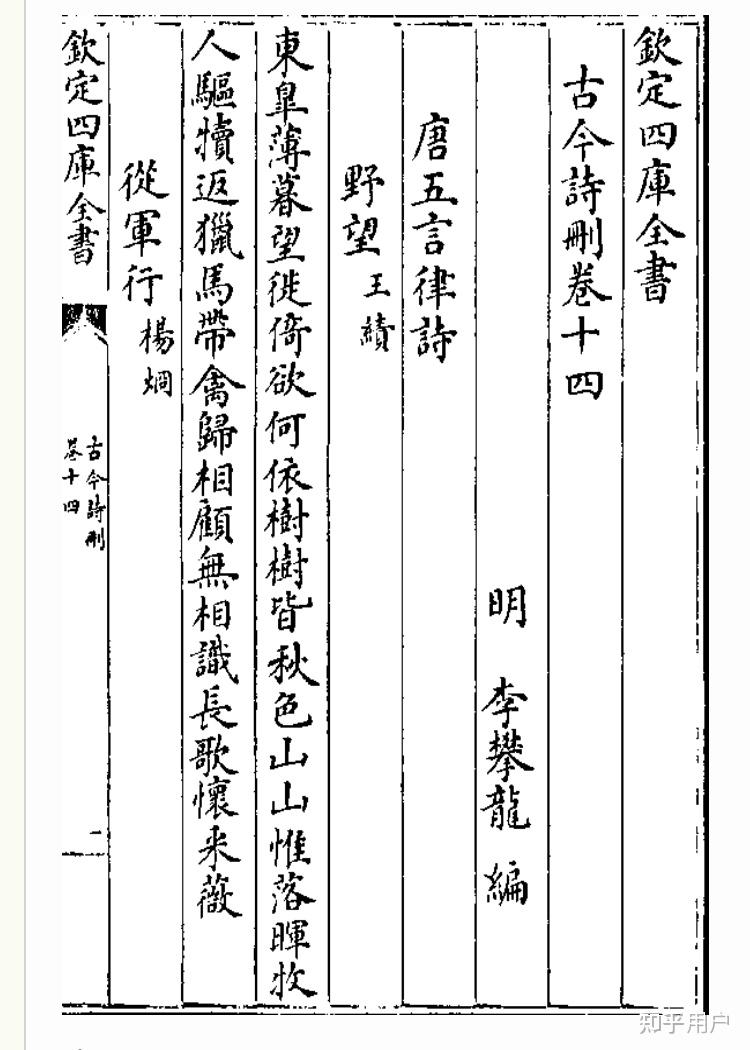 欽定四庫全書
古今詩刪卷十四
明 李攀龍 編
唐五言律詩
野望 王績
東臯薄暮望徙倚欲何依樹樹皆秋色山山惟落暉牧
人驅犢返獵馬帶禽歸相顧無相識長歌懷采薇
從軍行 楊烱
欽定四庫全書
古今詩刪
卷十四
一
知乎用户